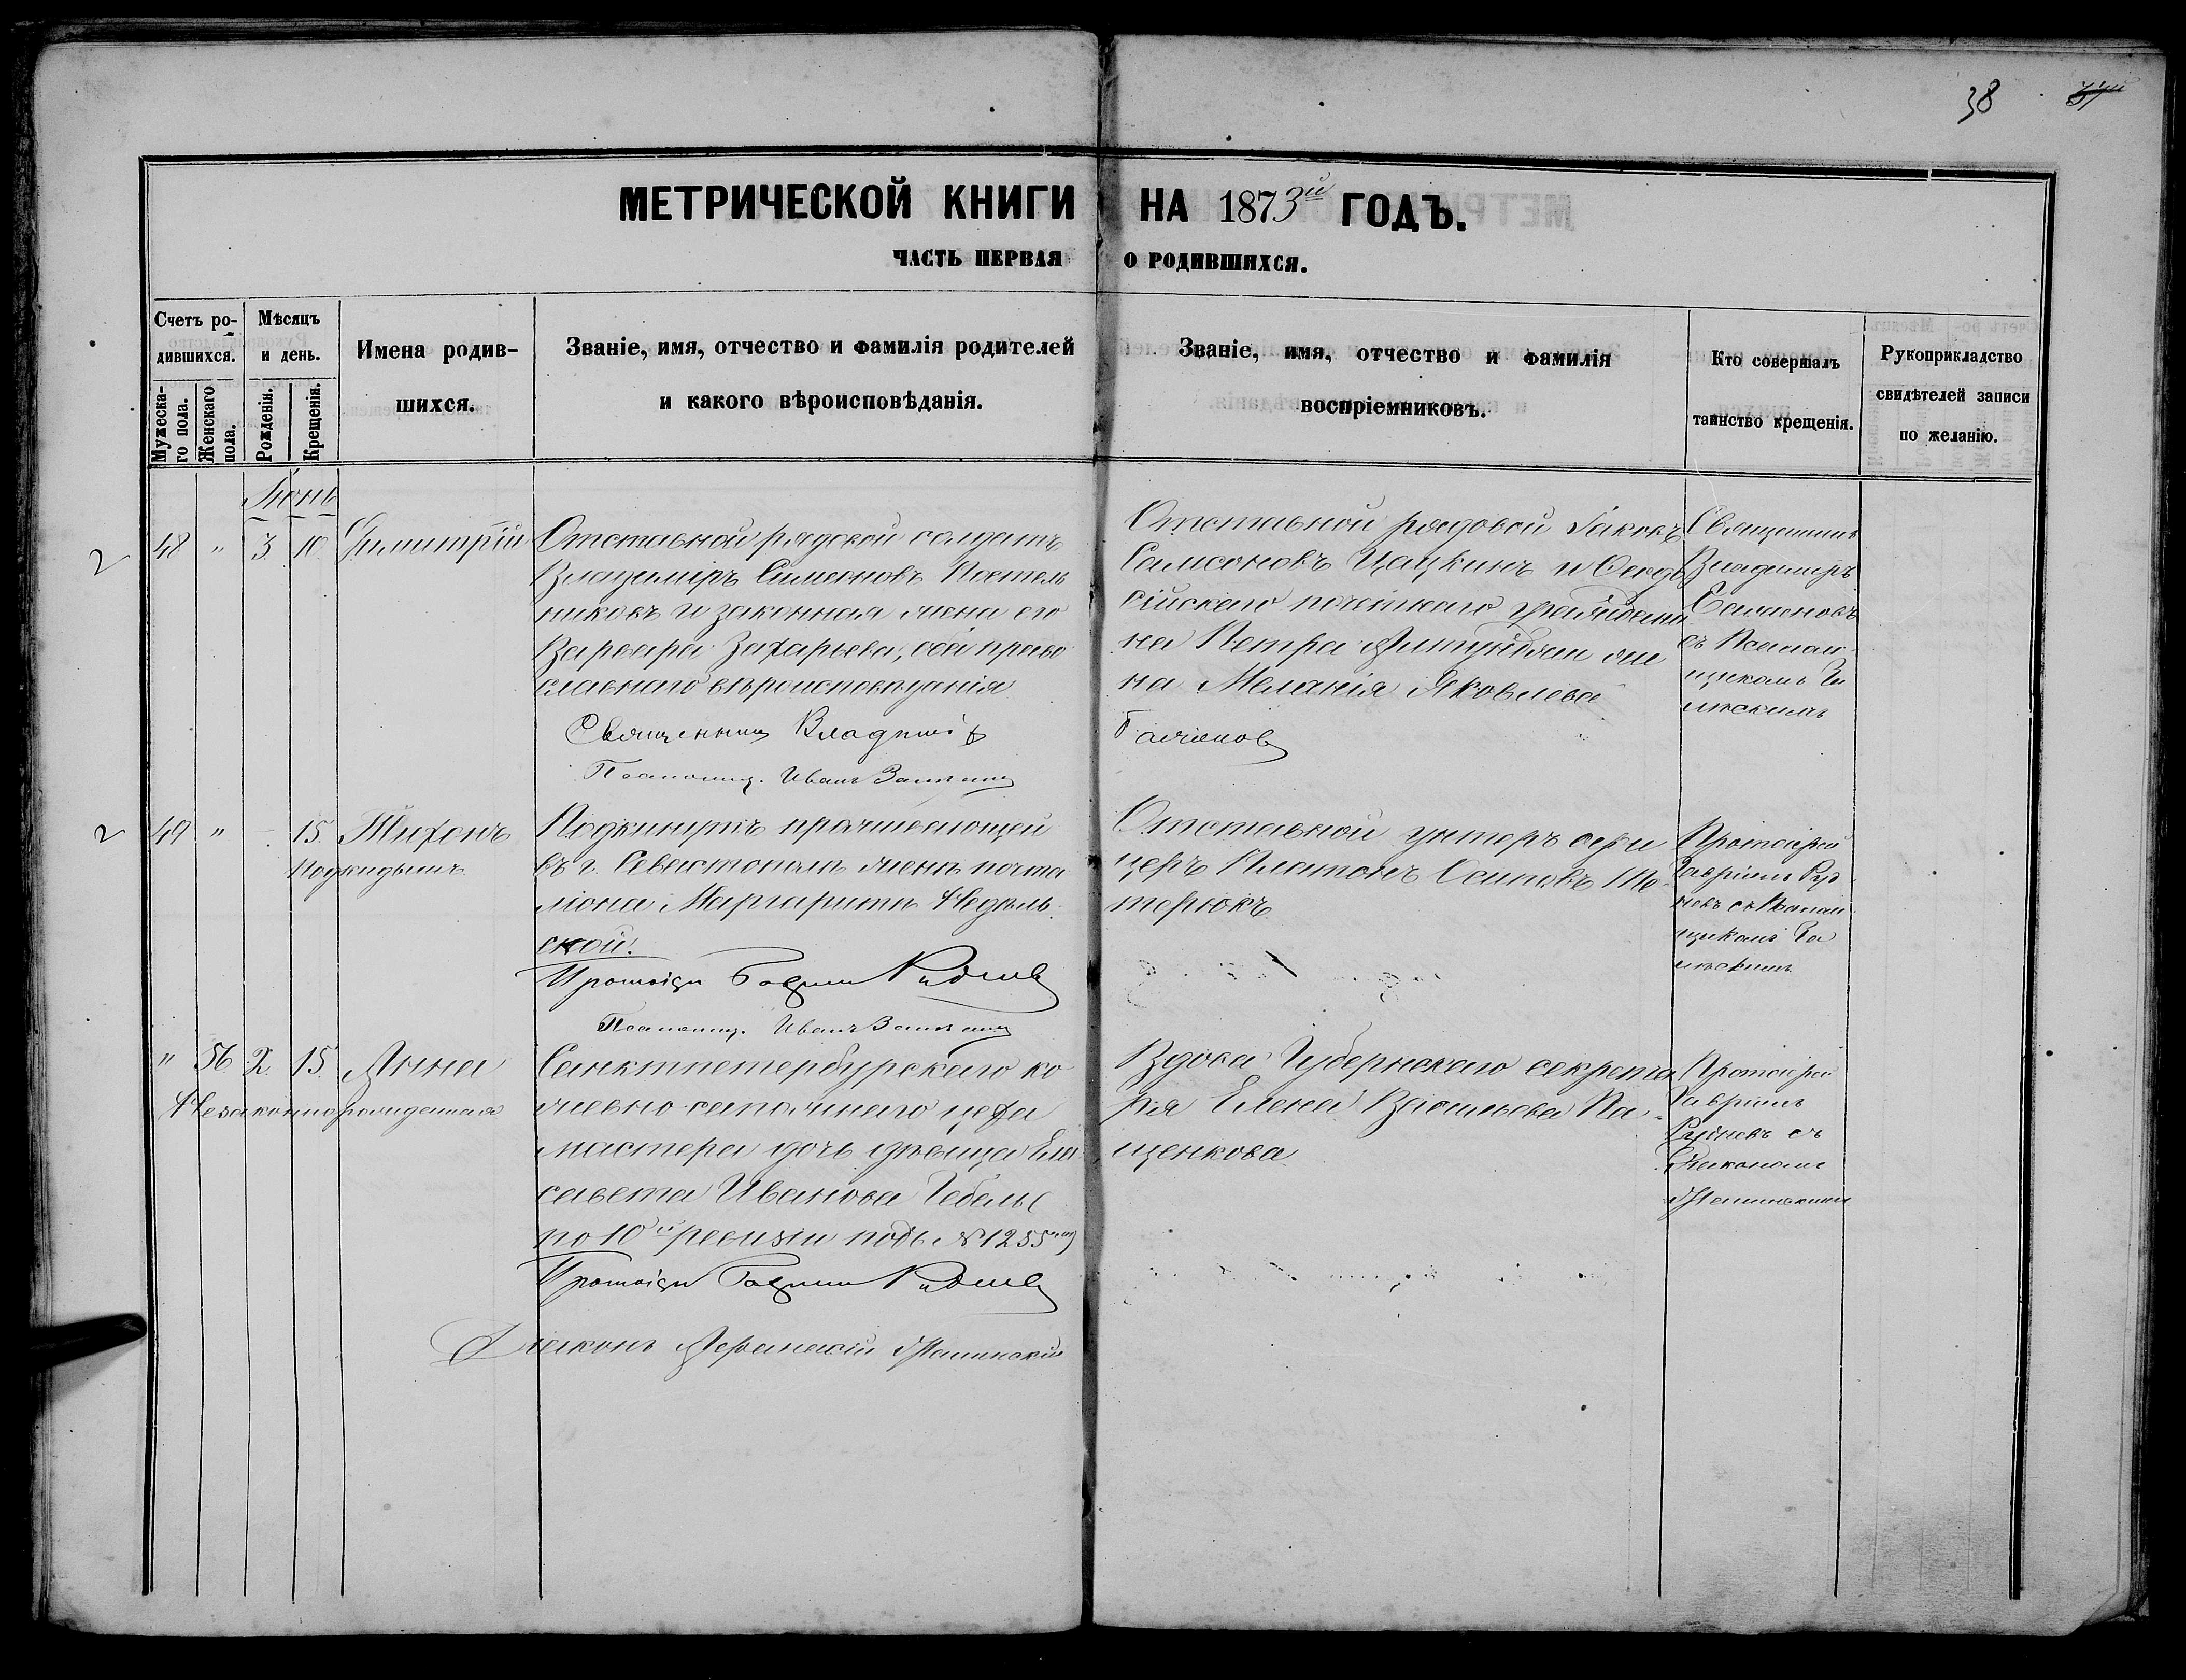 38
МЕТРИЧЕСКОЙ КНИГИ НА 1873й ГОДЪ.
ЧАСТЬ ПЕРВАЯ О РОДИВШИХСЯ.
Счетъ родившихся.
Мужескаго пола.
Женскаго пола.
Мѣсяцъ и день.
Рожденія.
Крещенія.
Имена родившихся.
Званіе, имя, отчество и фамилія родителей
и какого вѣроисповѣданія.
Званіе, имя, отчество и фамилія
воспріемниковъ.
Кто совершалъ
таинство крещенія.
Рукоприкладство
свидѣтелей записи
по желанію.
Іюнь
2 48 " 3 10 Димитрій
Отставной рядовой солдатъ
Владиміръ Симеоновъ Постель
никовъ и законная жена его
Варвара Захарьева, оба право
славнаго вѣроисповѣданія
Священникъ Владиміръ Баліановъ
Псаломщ. Иванъ
Отставной рядовой Іаковъ
Самсоновъ Цацкинъ и Ѳеодо
сійскаго почетнаго гражданина
на Петра же
на Меланія Яковлева
Священникъ
Владиміръ
Баліановъ
съ Псалом
щикомъ
2 49 " 15. Тихонъ
Подкидышъ
Подкинутъ проживающей
въ г. Севастополѣ женѣ почта
ліона Маргаритѣ Недѣль
ской.
Протоіерей Гавріилъ Рудневъ
Псаломщ. Иванъ
Отставной унтеръ офи
церъ Платонъ Осиповъ
Протоіерей
Гавріилъ Руд
невъ съ Псалом
щикомъ
" 56. 2. 15. Анна
Незаконнорожденная
Санктпетербургскаго ко
жевно-сапожнаго цеха
мастера дочь дѣвица Ели
савета Иванова Гебель (
по 10й ревизіи подъ № 1255)
Протоіерей Гавріилъ Рудневъ
Діаконъ
Вдова Губернскаго секрета
ря Елена Васильева Па
щенкова
Протоіерей
Гавріилъ
Рудневъ съ
Діакономъ